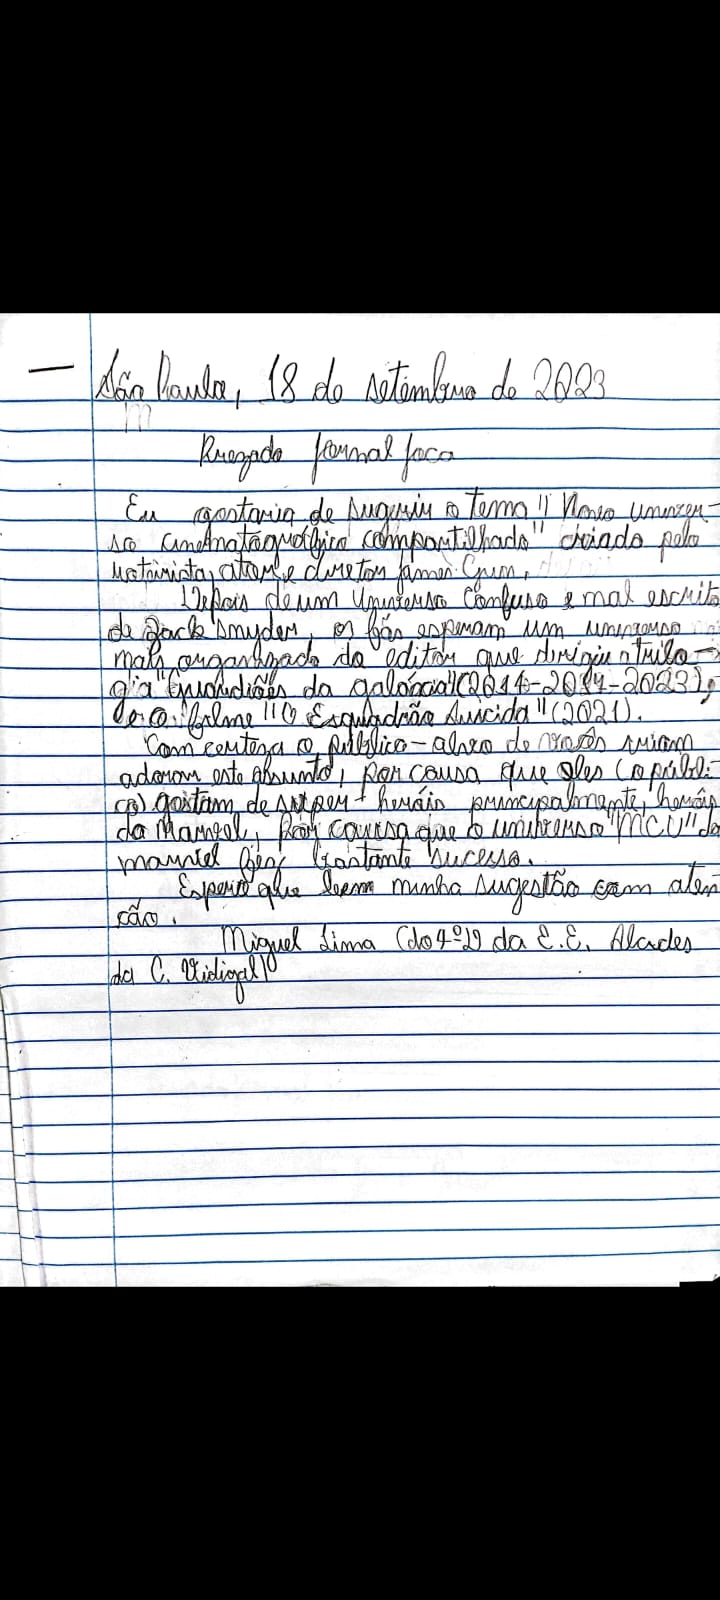 São Paulo, 18 de setembro de 2023
Prezado Jornal Joca
Eu gostaria de sugerir o tema "Novo univer-
so compartilhado" criado pelo
diretor James Gum,
Depois de um Universo Confuso e mal escrito
de Zack Snyder, os fãs esperam um universo
mais organizado do editor que dirigiu a trilo-
gia "Guardiões da galáxia" (2014-2014-2023),
e o filme "O Esquadrão Suicida" (2021).
Com certeza o público-alvo de vocês iriam
adorar este assunto, por causa que eles (o públi-
co) gostam de super-heróis principalmente, heróis
da Marvel, por causa que o universo "MCU" da
marvel fez bastante sucesso.
Espero que leem minha sugestão com aten
ção.
Miguel Lima (do 4º) da E.E. Alcides
da C. Vidigal